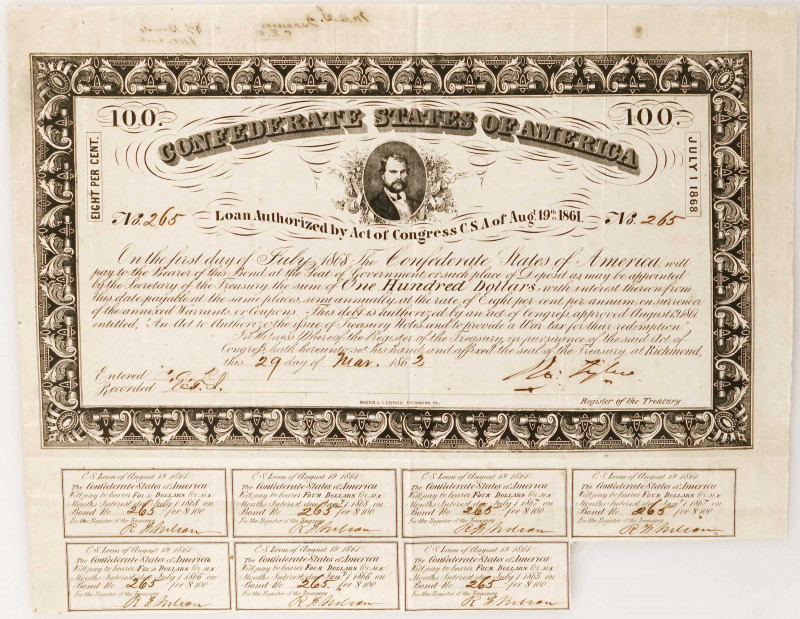 100.
CONFEDERATE STATES OF AMERICA
100.
EIGHT PER CENT.
JULY 1 1868
No. 265
Loan Authorized by Act of Congress C.S.A of Augt. 19th. 1861.
No. 265
On the first day of July 1868 The Confederate States of America will
pay to the Bearer of this Bond at the Seat of Government, or such place of Deposit as may be appointed
by the Secretary of the Treasury, the sum of One Hundred Dollars, with interest thereon from
this date payable at the same places, semi annually, at the rate of Eight per cent. per annum, on surrender
of the annexed Warrants, or Coupons. This debt is authorized by an act of Congress, approved August 19, 1861,
entitled, "An Act to Authorize the issue of Treasury Notes, and to provide a War tax for their redemption."
In Witness Whereof the Register of the Treasury, in pursuance of the said Act of
Congress, hath hereunto set his hand, and affixed the seal of the Treasury, at Richmond,
this 29 day of Mar. 1862
Entered
Recorded
Ro. Tyler
HOYER & LUDWIG, RICHMOND VA.
Register of the Treasury
C.S. Loan of August 19 1861
The Confederate States of America
Will pay to bearer FOUR DOLLARS for six
Months Interest due July 1 1868 on
Bond No 265 for $ 100
For the Register of the Treasury
R F Wilson
C.S. Loan of August 19 1861
The Confederate States of America
Will pay to bearer FOUR DOLLARS for six
Months Interest due Jany 1 1868 on
Bond No 265 for $ 100
For the Register of the Treasury
R F Wilson
C.S. Loan of August 19 1861
The Confederate States of America
Will pay to bearer FOUR DOLLARS for six
Months Interest due July 1 1867 on
Bond No 265 for $ 100
For the Register of the Treasury
R F Wilson
C.S. Loan of August 19 1861
The Confederate States of America
Will pay to bearer FOUR DOLLARS for six
Months Interest due Jany 1 1867 on
Bond No 265 for $ 100
For the Register of the Treasury
R F Wilson
C.S. Loan of August 19 1861
The Confederate States of America
Will pay to bearer FOUR DOLLARS for six
Months Interest due July 1 1866 on
Bond No 265 for $ 100
For the Register of the Treasury
R F Wilson
C.S. Loan of August 19 1861
The Confederate States of America
Will pay to bearer FOUR DOLLARS for six
Months Interest due Jany 1 1866 on
Bond No 265 for $ 100
For the Register of the Treasury
R F Wilson
C.S. Loan of August 19 1861
The Confederate States of America
Will pay to bearer FOUR DOLLARS for six
Months Interest due July 1 1865 on
Bond No 265 for $ 100
For the Register of the Treasury
R F Wilson